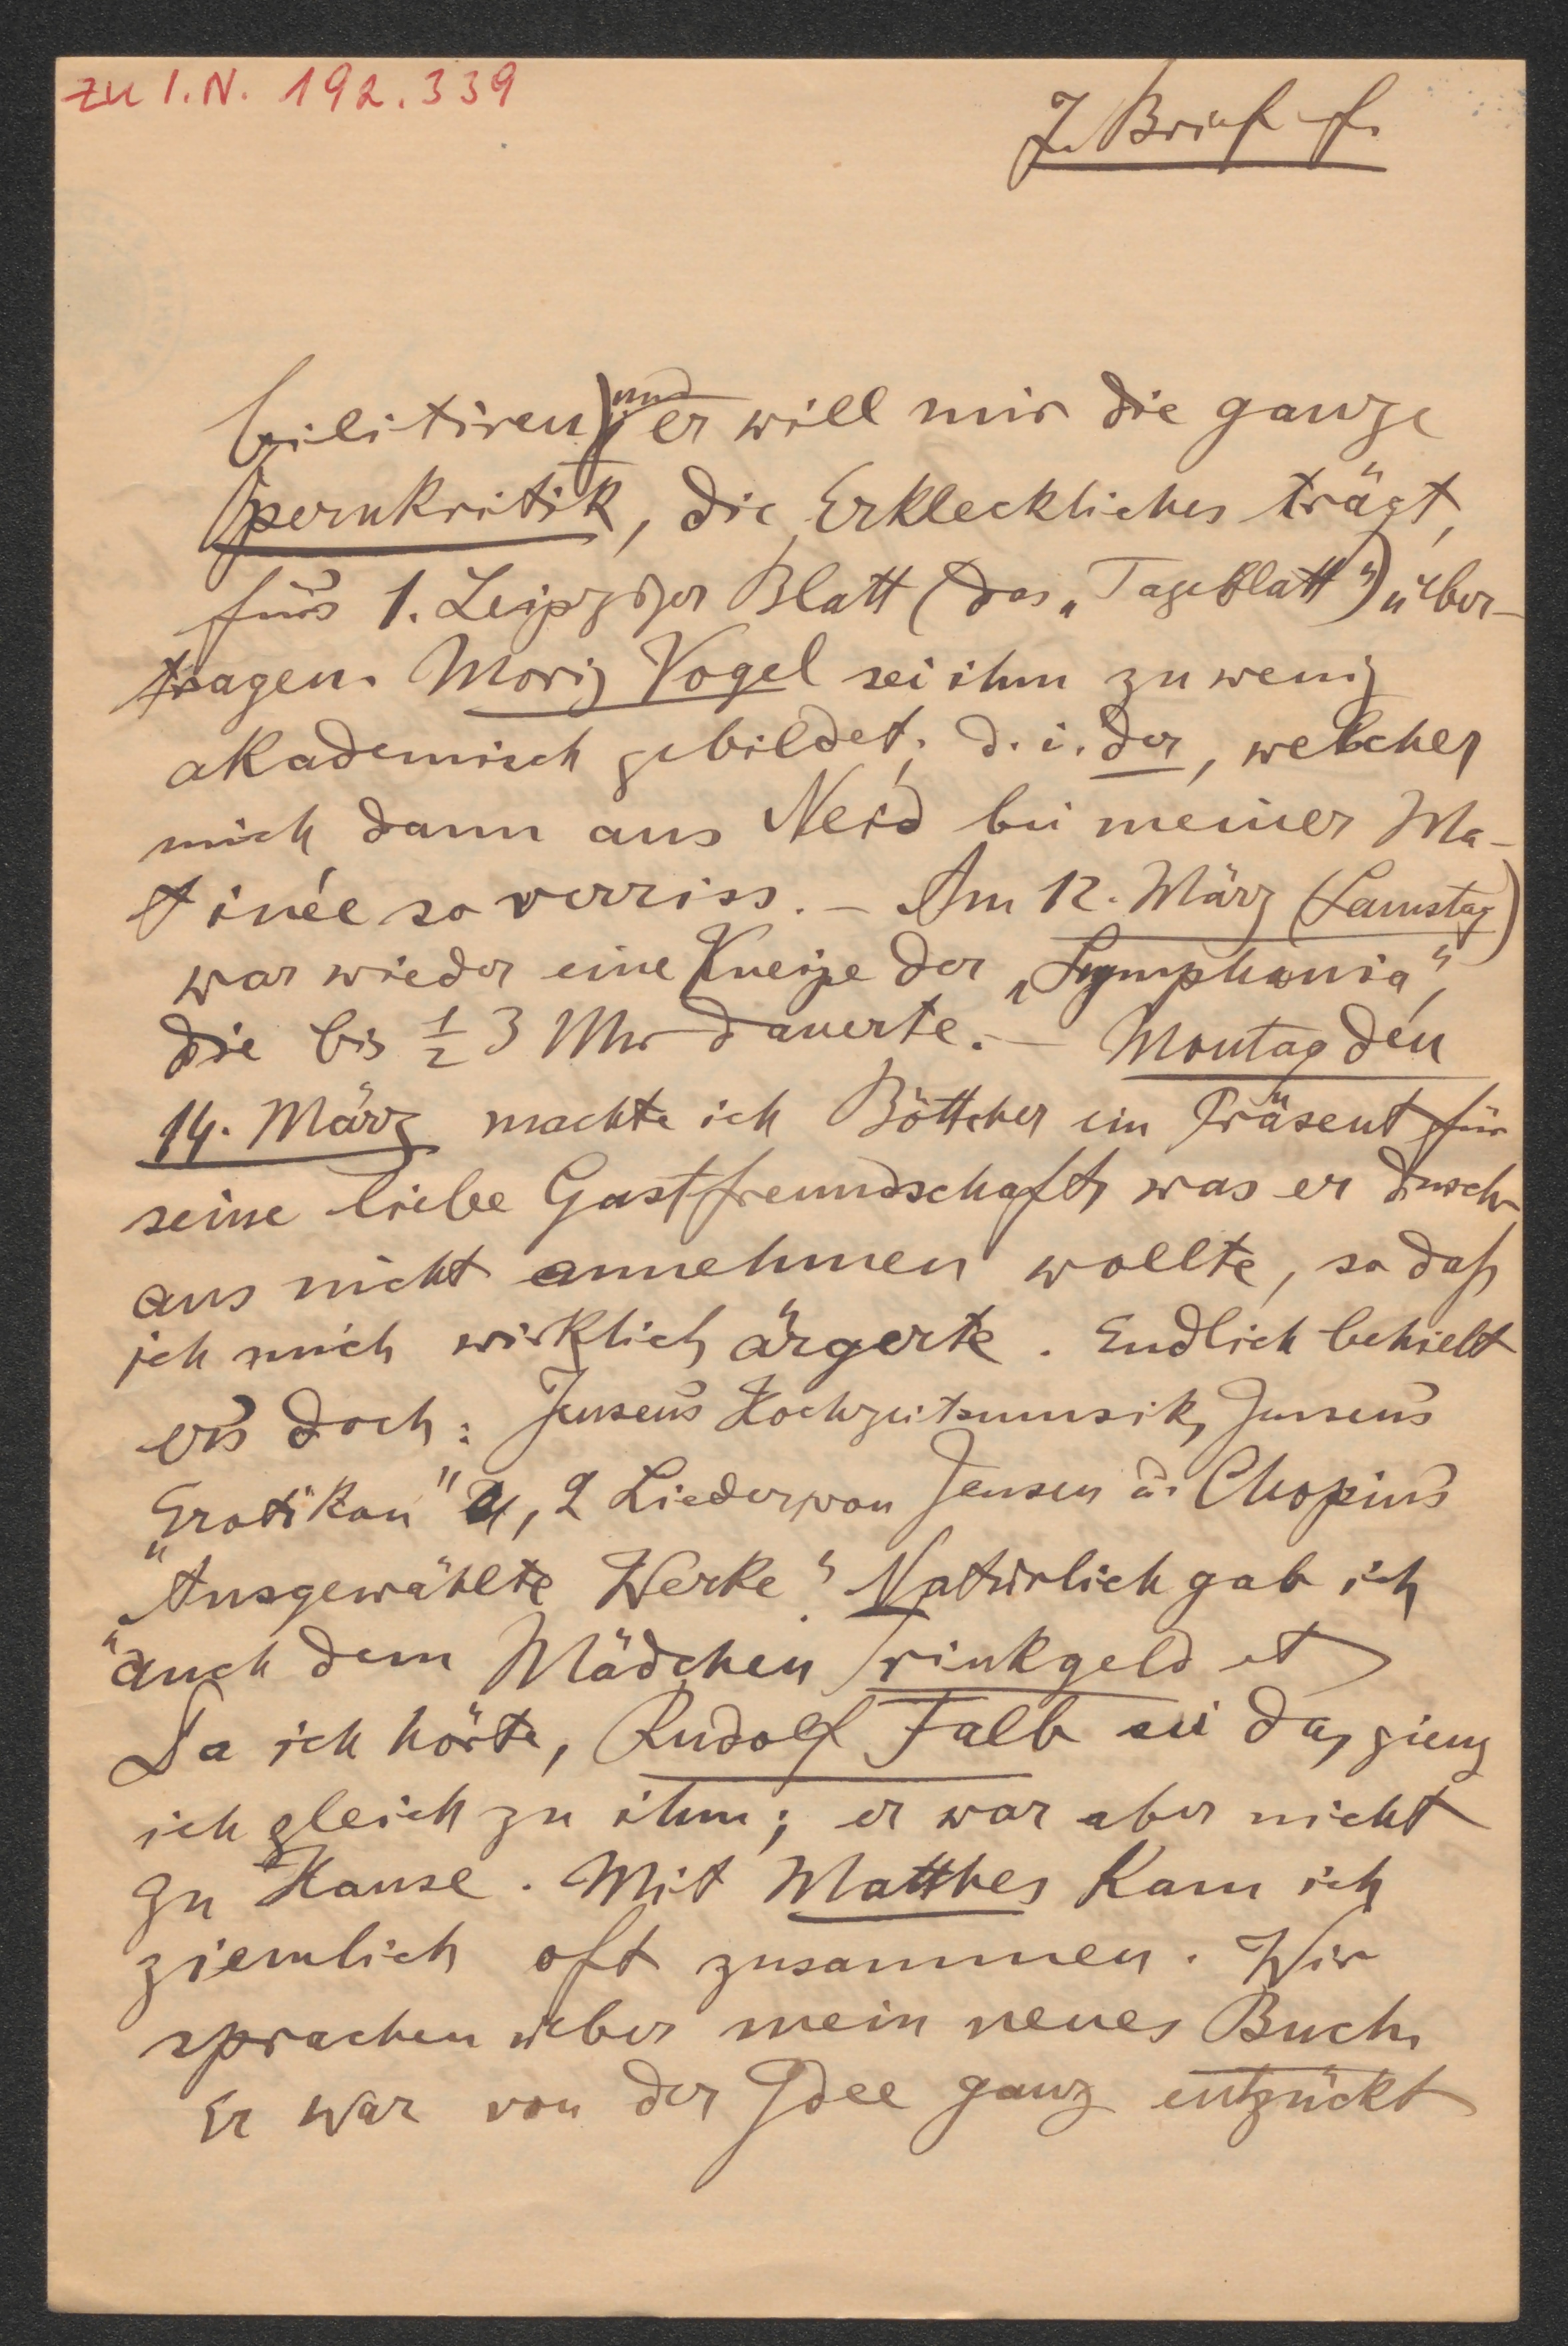 zu I.N. 192.339
J. Brief f.
bilitiren) und er will mir die ganze
Opernkritik, die Erkleckliches trägt,
für's 1. Leipziger Blatt (das „Tageblatt") über-
tragen. Moriz Vogel sei ihm zu wenig
akademisch gebildet; d. i. der, welcher
mich dann aus Neid bei meiner Ma-
tinée so verriss. – Am 12. März (Samstag)
war wieder eine Kneipe der „Symphonia",
die bis ½ 3 Uhr dauerte. – Montag den
14. März machte ich Böttcher ein Präsent für
seine liebe Gastfreundschaft, was er durch-
aus nicht annehmen wollte, so daß
ich mich wirklich ärgerte. Endlich behielt
er's doch: Jensen's Hochzeitsmusik, Jensen's
„Erotikon" u, 2 Lieder von Jensen u. Chopin's
„Ausgewählte Werke". Natürlich gab ich
auch dem Mädchen Trinkgeld et
Da ich hörte, Rudolf Falb sei da, gieng
ich gleich zu ihm; er war aber nicht
zu Hause. Mit Matthes kam ich
ziemlich oft zusammen. Wir
sprachen über mein neues Buch.
Er war von der Idee ganz entzückt